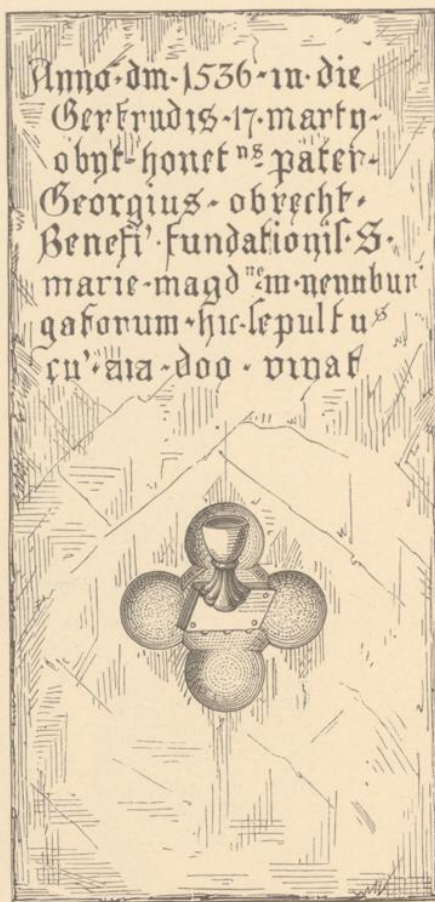 Anno·dm·1536·in·die
Gertrudis·17·marty·
obyt·honet ⁿˢ·pater·
Georgius·obrecht·
Benefi'·fundationis·S·
marie·magd ⁿᵉ·m·nennbur
gatorum·hic·sepultuˢ
cu'·aia·doo·vivat